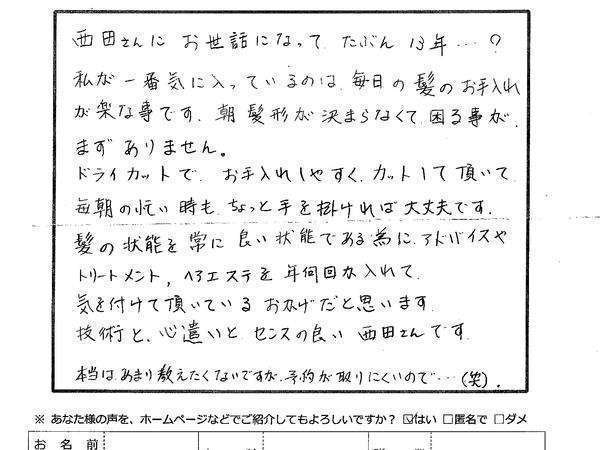 西田さんに お世話になって たぶん 13年…?
私が一番気に入っているのは、毎日の髪のお手入れ
が楽な事です。朝髪形が決まらなくて困る事が、
まずありません。
ドライカットで、お手入れしやすく、カットして頂いて
毎朝の忙い時も、ちょっと手を掛ければ大丈夫です。
髪の状態を常に良い状態である為に、アドバイスや
トリートメント, ヘアエステを年何回か入れて、
気を付けて頂いているおかげだと思います。
技術と、心遣いと センスの良い 西田さんです。
本当は、あまり教えたくないですが、予約が取りにくいので…(笑).
※ あなた様の声を、ホームページなどでご紹介してもよろしいですか? ☑はい □匿名で □ダメ
お 名 前